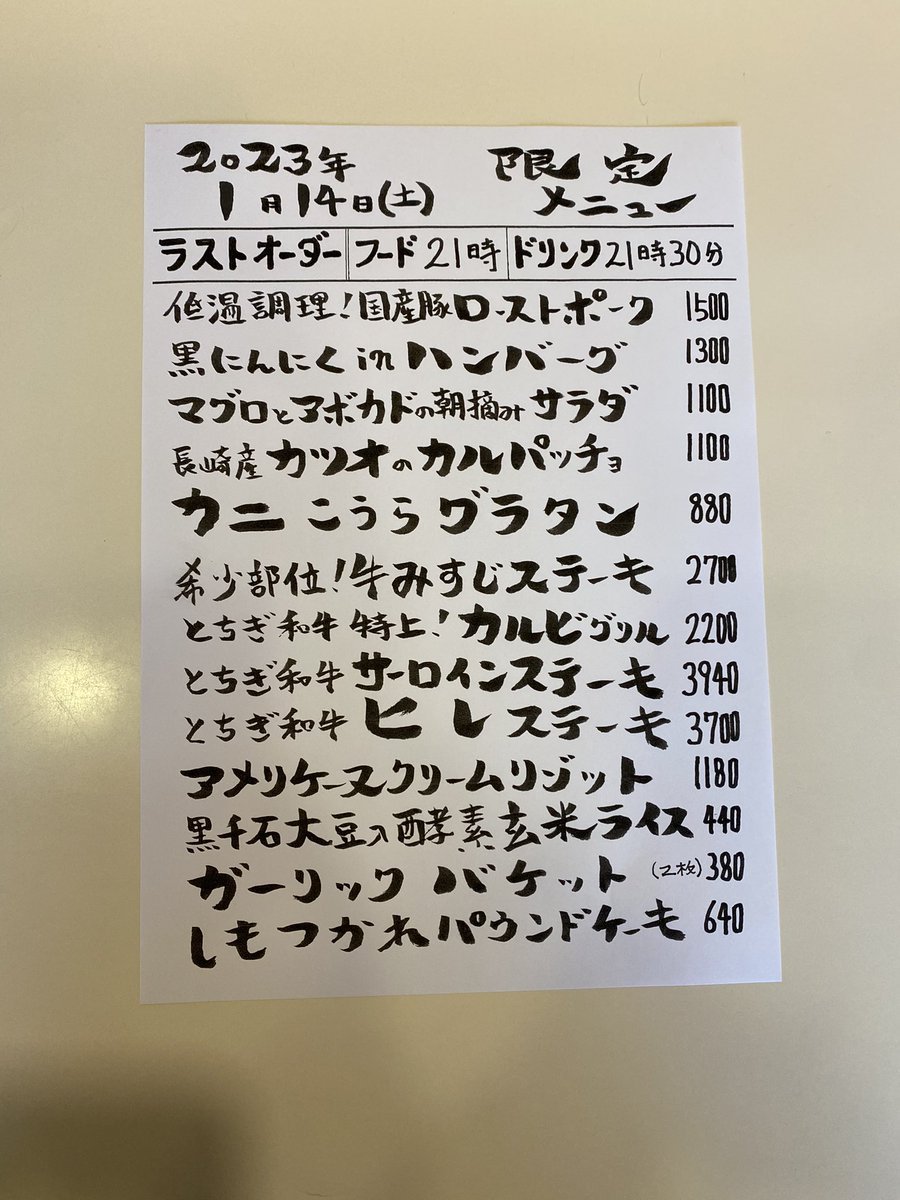 2023年 限定
1月14日(土) メニュー
ラストオーダー フード21時 ドリンク21時30分
低温調理!国産豚ローストポーク 1500
黒にんにくinハンバーグ 1300
マグロとアボカドの朝摘みサラダ 1100
長崎産カツオのカルパッチョ 1100
カニこうらグラタン 880
希少部位!牛みすじステーキ 2700
とちぎ和牛特上!カルビグリル 2200
とちぎ和牛サーロインステーキ 3940
とちぎ和牛ヒレステーキ 3700
アメリケーヌクリームリゾット 1180
黒千石大豆入酵素玄米ライス 440
ガーリックバケット (2枚) 380
しもつかれパウンドケーキ 640